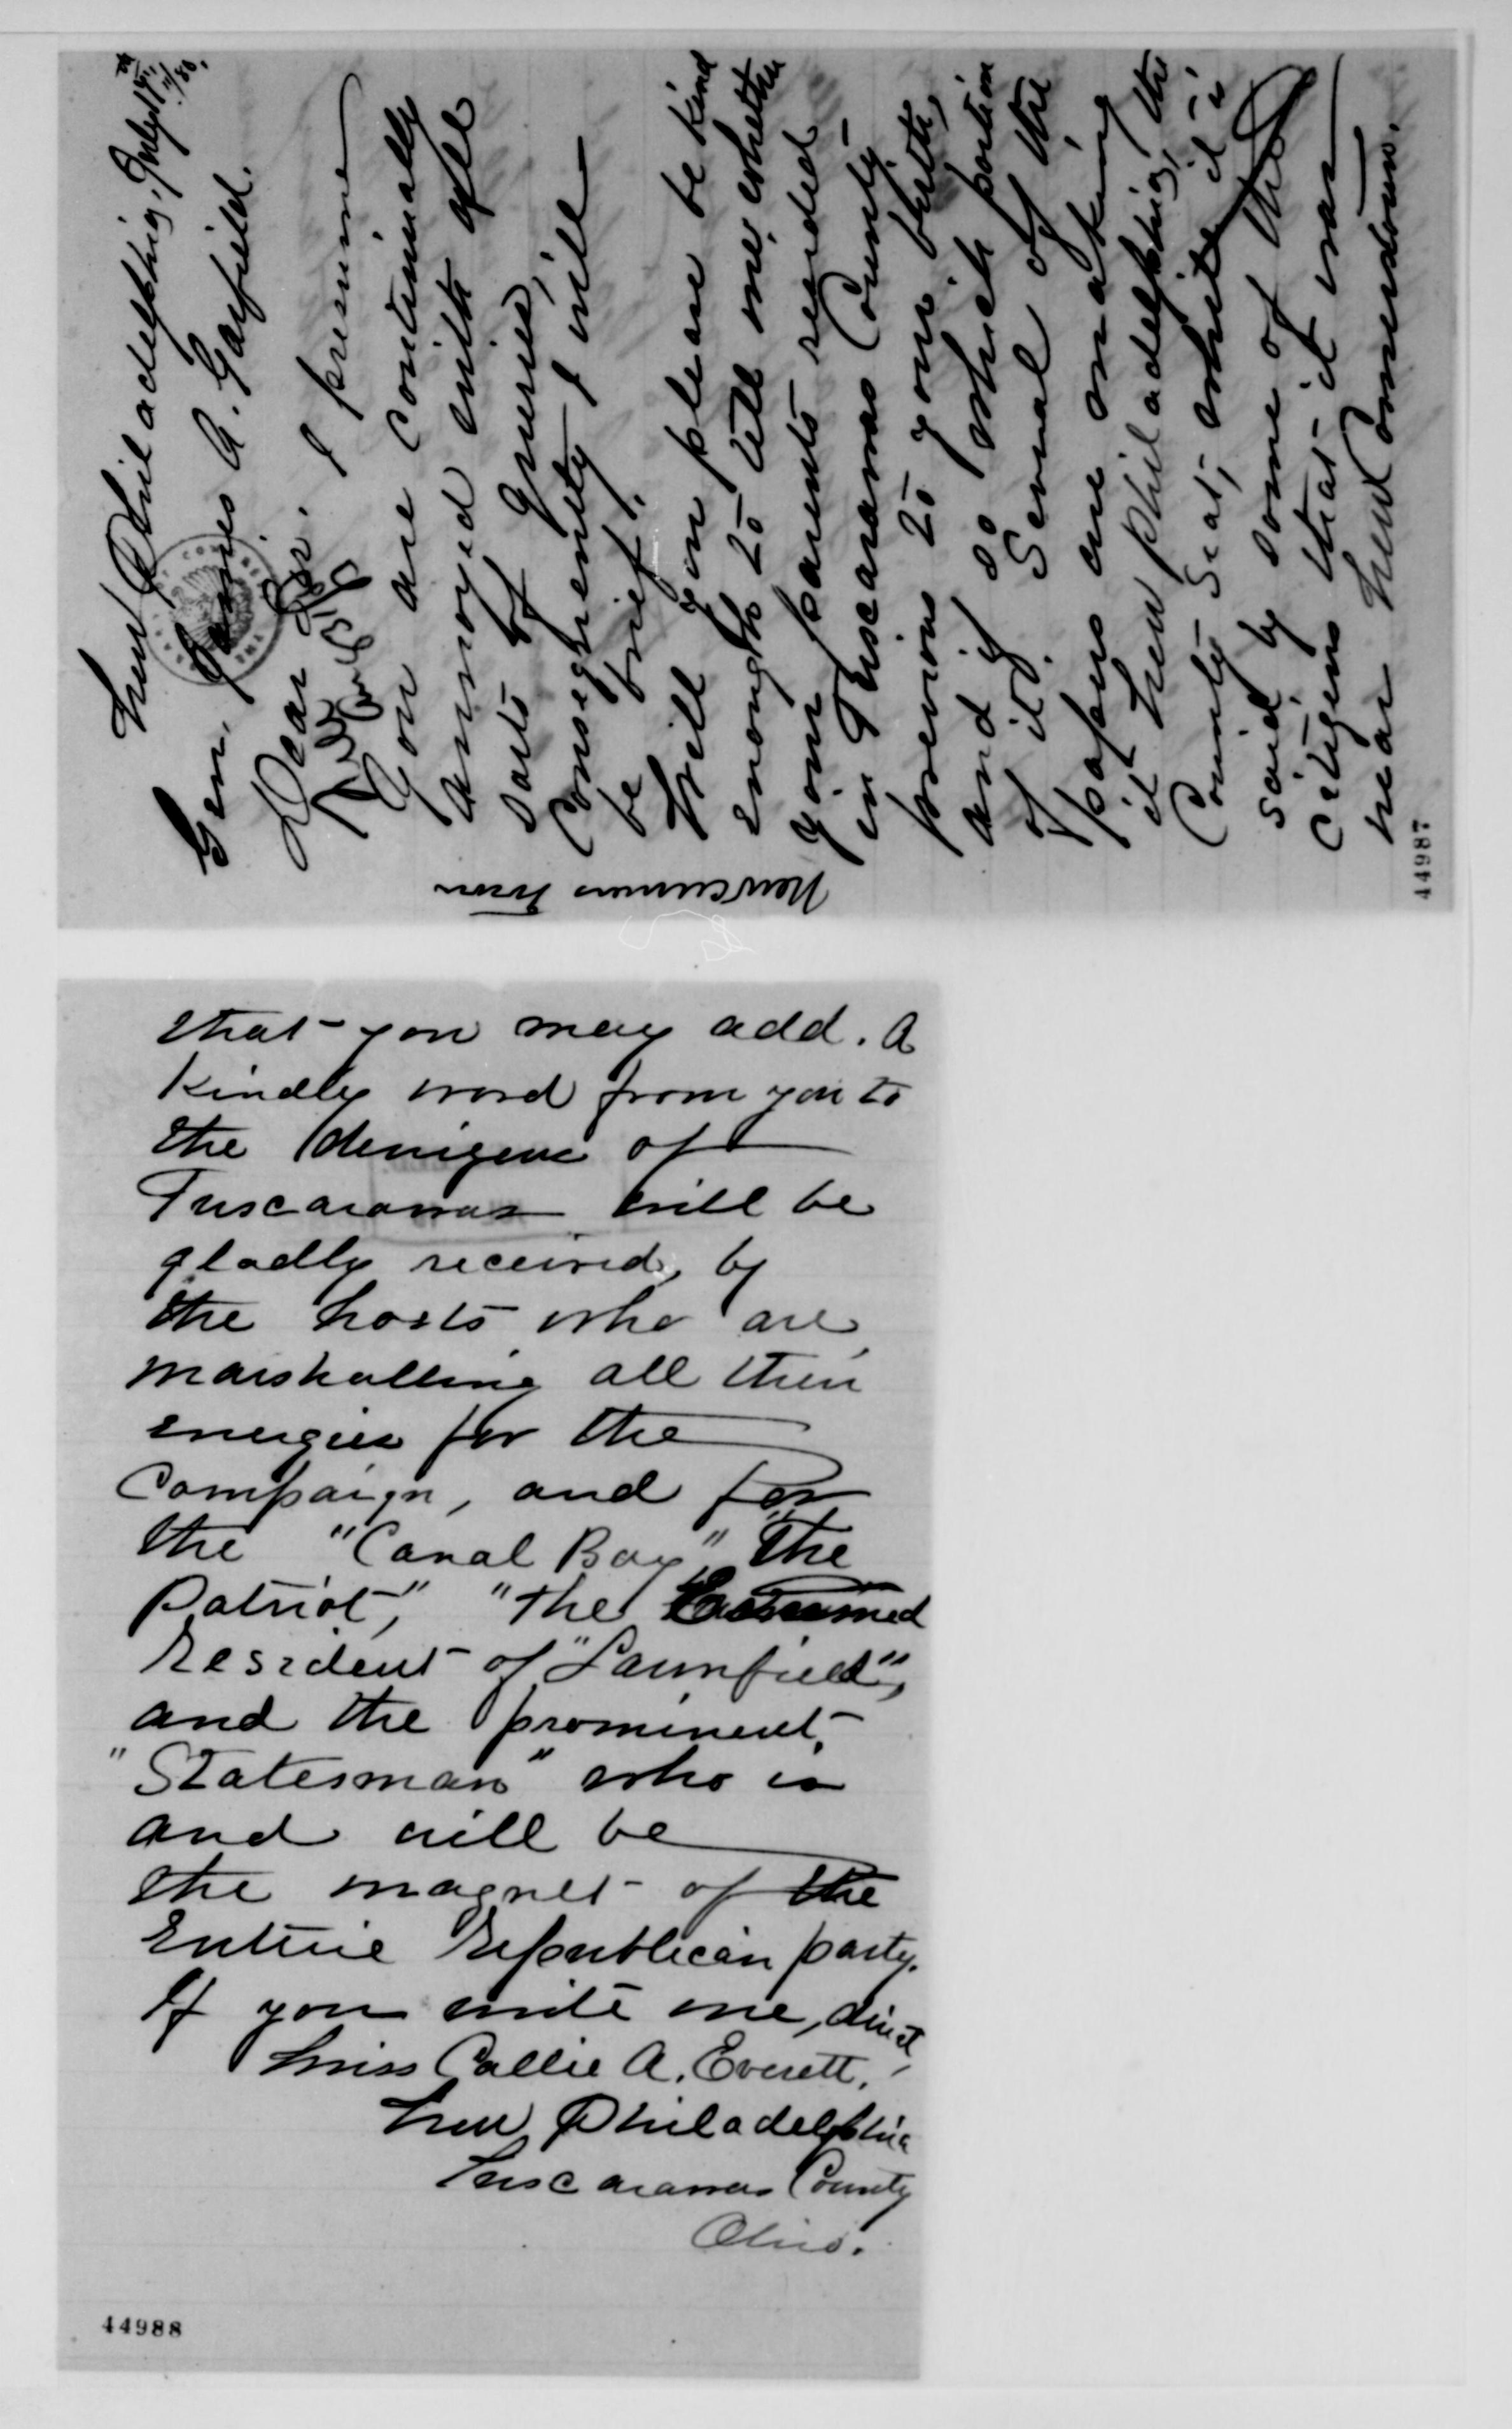 New Philadelphia, July 17th
/80.
Gen. James A. Garfield.
Dear Sir. I presume
You are continually
annoyed with all
sorts of queries,
Consequently I will
be brief.
Will you please be kind
enough to tell me whether
your parents resided
in Tuscarawas County
previous to your birth,
and if so which portion
of it. Several of the
papers are making
it New Philadelphia, the
County Seat, while it is
said by some of the
Citizens that it was
near New Comerstown.
Newcummers Town
44987
that you may add. A
kindly word from you to
the denizens of
Tuscarawas will be
gladly received, by
the hosts who are
marshalling all their
energies for the
Campaign, and for
the "Canal Boy", "The
Patriot," "The Esteemed
Resident of "Lawnfield",
and the prominent
"Statesman" who is
and will be
the magnet of the
Entire Republican party.
If you write me, direct,
Miss Callie A. Everett,
New Philadelphia
Tuscarawas County
Ohio.
44988